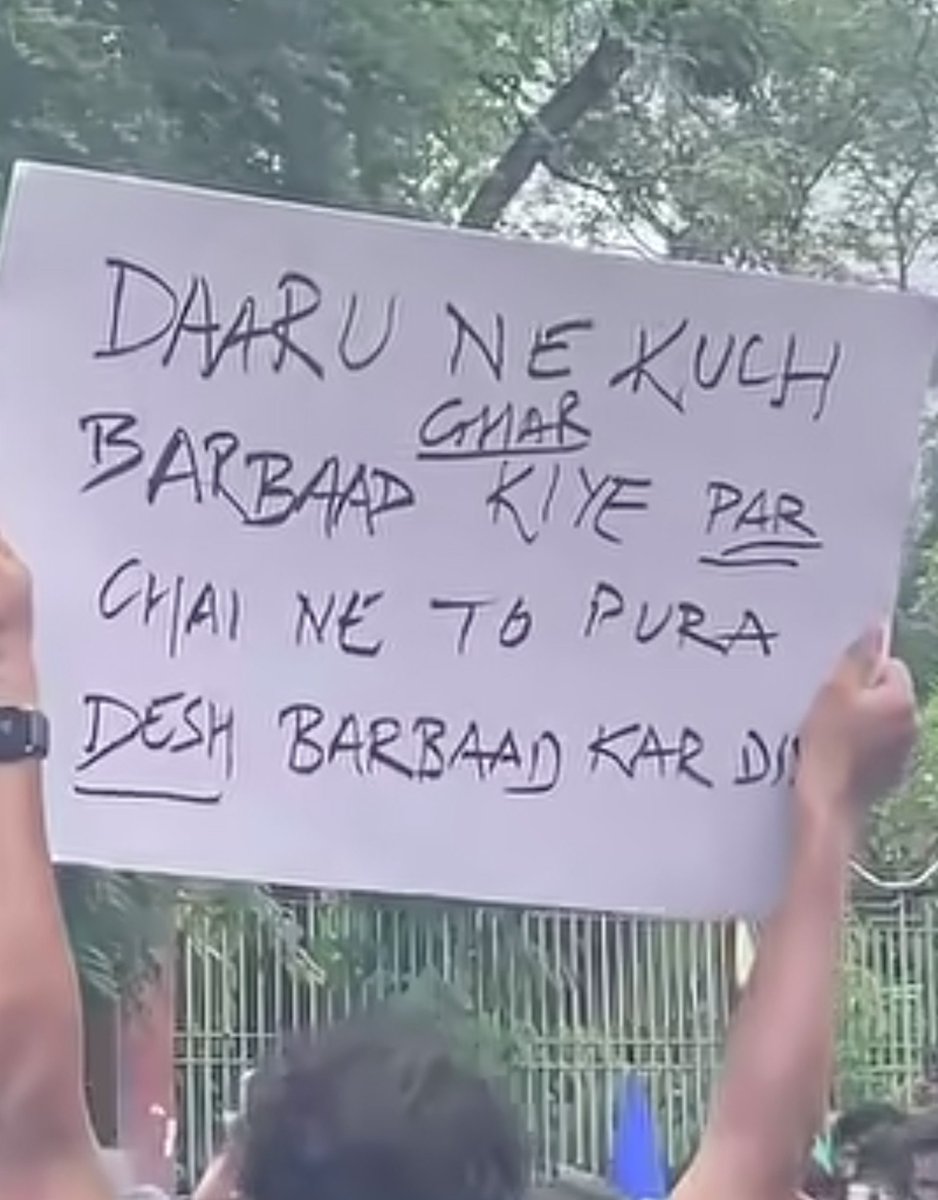 DAARU NE KUCH
GHAR
BARBAAD KIYE PAR
CHAI NE TO PURA
DESH BARBAAD KAR